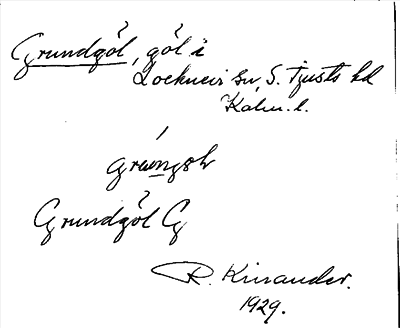 Grundgöl, göl i
Locknevi sn, S. Tjusts hd
Kalm. l.
Grundgöl G
R. Kinander.
1929.